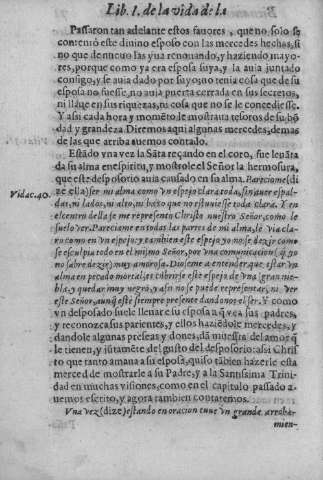 Lib. I. de la vida de la
Passaron tan adelante estos fauores, que no solo se
contentò este diuino esposo con las mercedes hechas, si
no que de nueuo las yua renouando, y haziendo mayo-
res, porque como ya era esposa suya, y la auia juntado
consigo, y se auia dado por suyo, no tenia cosa que de su
esposa no fuesse, no auia puerta cerrada en sus secretos,
ni llaue en sus riquezas, ni cosa que no se le concediesse.
Y assi cada hora y momēto le mostraua tesoros de su bō
dad y grandeza. Diremos aqui algunas mercedes, demas
de las que arriba auemos contado.
Estādo vna vez la Sāta reçando en el coro, fue leuāta
da su alma en espiritu, y mostrole el Señor la hermosura,
que este desposorio auia causado en su alma. Pareciome (di
Vida c. 40.
ze ella) ser mi alma como vn espejo clara toda, sin auer espal-
das, ni lados, ni alto, ni baxo que no estuuiesse toda clara. Y en
el centro della se me representò Christo nuestro Señor, como le
suelo ver. Pareciame en todas las partes de mi alma, le via cla-
ro como en vn espejo: y tambien este espejo yo no se dezir como
se esculpia todo en el mismo Señor, por vna comunicacion (q̄ yo
no sabre dezir) muy amorosa. Dioseme a entender que estar vn
alma en pecado mortal, es cubrirse este espejo de vna gran nie-
bla, y quedar muy negro, y assi no se puede representar, ni ver
este Señor, aunq̄ este siempre presente dandonos el ser. Y como
vn desposado suele lleuar su esposa a q̄ vea sus padres,
y reconozca sus parientes, y ellos haziēdole mercedes, y
dandole algunas preseas, y dones, dā muestra del amor q̄
le tienen, y jūtamēte del gusto del desposorio: assi Chris
to que tanto amaua a su esposa, quiso tābien hazerle esta
merced de mostrarle a su Padre, y a la Santissima Trini-
dad en muchas visiones, como en el capitulo passado a-
uemos escrito, y agora tambien contaremos.
Vna vez (dize) estando en oracion tuue vn grande arrobā
mien-